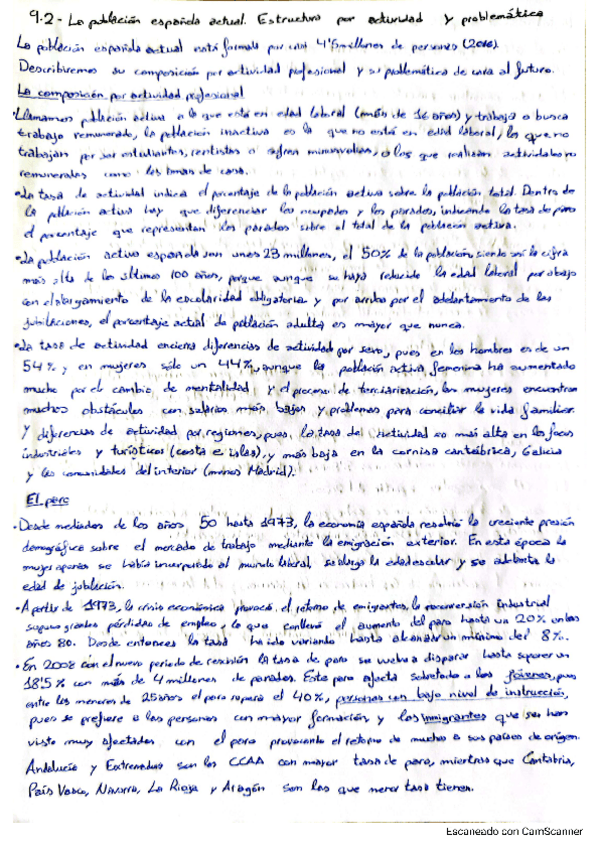 9.2 - La población española actual. Estructura por actividad y problemática
La población española actual está formada por casi 4'6 millones de personas (2016).
Describiremos su composición por actividad profesional y su problemática de cara al futuro.
La composición por actividad profesional
·Llamamos población activa a la que está en edad laboral (más de 16 años) y trabaja o busca
trabajo remunerado, la población inactiva es la que no está en edad laboral, la que no
trabajan por ser estudiantes, rentistas o sufren minusvalías, o los que realizan actividades no
remuneradas como las amas de casa.
·La tasa de actividad indica el porcentaje de la población activa sobre la población total. Dentro de
la población activa hay que diferenciar los ocupados y los parados, indicando la tasa de paro
el porcentaje que representan los parados sobre el total de la población activa.
·La población activa española son unos 23 millones, el 50% de la población, siendo así la cifra
más alta de los últimos 100 años, porque aunque se haya reducido la edad laboral por abajo
con el alargamiento de la escolaridad obligatoria y por arriba por el adelantamiento de las
jubilaciones, el porcentaje actual de población adulta es mayor que nunca.
·La tasa de actividad encierra diferencias de actividad por sexo, pues en los hombres es de un
54%, y en mujeres sólo un 44%, aunque la población activa femenina ha aumentado
mucho por el cambio de mentalidad y el proceso de terciarización, las mujeres encuentran
muchos obstáculos con salarios más bajos y problemas para conciliar la vida familiar.
Y diferencias de actividad por regiones, pues la tasa de actividad es más alta en los focos
industriales y turísticos (costa e islas), y más baja en la cornisa cantábrica, Galicia
y las comunidades del interior (menos Madrid).
El paro
·Desde mediados de los años 50 hasta 1973, la economía española resolvía la creciente presión
demográfica sobre el mercado de trabajo mediante la emigración exterior. En esta época la
mujer apenas se había incorporado al mundo laboral, se alarga la edad escolar y se adelanta la
edad de jubilación.
·A partir de 1973, la crisis económica provocó el retorno de emigrantes, la reconversión industrial
supuso grandes pérdidas de empleo, lo que conllevó el aumento del paro hasta un 20% en los
años 80. Desde entonces la tasa ha ido variando hasta alcanzar un mínimo del 8%.
·En 2008 con el nuevo periodo de recesión la tasa de paro se vuelve a disparar hasta superar un
18'5% con más de 4 millones de parados. Este paro afecta sobretodo a los jóvenes, pues
entre los menores de 25 años el paro supera el 40%, personas con bajo nivel de instrucción,
pues se prefiere a las personas con mayor formación y los inmigrantes que se han
visto muy afectados con el paro provocando el retorno de muchos a sus países de origen.
Andalucía y Extremadura son las CCAA con mayor tasa de paro, mientras que Cantabria,
País Vasco, Navarra, La Rioja y Aragón son las que menor tasa tienen.
Escaneado con CamScanner